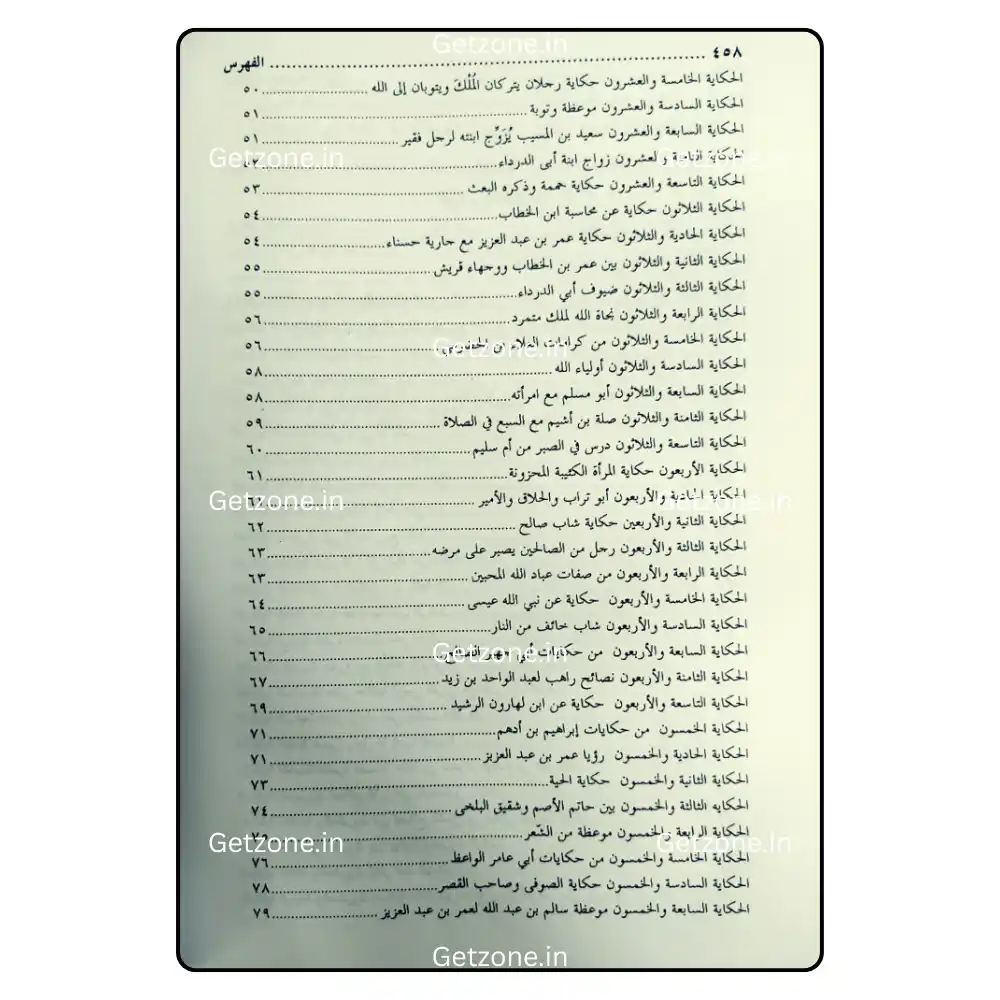 ٤٥٨ ........ الفهرس
الحكاية الخامسة والعشرون حكاية رجلان يتركان الْمُلْكَ ويتوبان إلى الله ........ ٥٠
الحكاية السادسة والعشرون موعظة وتوبة ........ ٥١
الحكاية السابعة والعشرون سعيد بن المسيب يُزَوِّج ابنته لرجل فقير ........ ٥١
الحكاية الثامنة والعشرون زواج ابنة أبى الدرداء ........ ٥٢
الحكاية التاسعة والعشرون حكاية حممة وذكره البعث ........ ٥٣
الحكاية الثلاثون حكاية عن محاسبة ابن الخطاب ........ ٥٤
الحكاية الحادية والثلاثون حكاية عمر بن عبد العزيز مع جارية حسناء ........ ٥٤
الحكاية الثانية والثلاثون بين عمر بن الخطاب ووجهاء قريش ........ ٥٥
الحكاية الثالثة والثلاثون ضيوف أبي الدرداء ........ ٥٥
الحكاية الرابعة والثلاثون نجاة الله لملك متمرد ........ ٥٦
الحكاية الخامسة والثلاثون من كرامات العلاء بن ........ ٥٦
الحكاية السادسة والثلاثون أولياء الله ........ ٥٨
الحكاية السابعة والثلاثون أبو مسلم مع امرأته ........ ٥٨
الحكاية الثامنة والثلاثون صلة بن أشيم مع السبع في الصلاة ........ ٥٩
الحكاية التاسعة والثلاثون درس في الصبر من أم سليم ........ ٦٠
الحكاية الأربعون حكاية المرأة الكئيبة المحزونة ........ ٦١
الحكاية الحادية والأربعون أبو تراب والحلاق والأمير ........
الحكاية الثانية والأربعين حكاية شاب صالح ........ ٦٢
الحكاية الثالثة والأربعون رجل من الصالحين يصبر على مرضه ........ ٦٣
الحكاية الرابعة والأربعون من صفات عباد الله المحبين ........ ٦٣
الحكاية الخامسة والأربعون حكاية عن نبي الله عيسى ........ ٦٤
الحكاية السادسة والأربعون شاب خائف من النار ........ ٦٥
الحكاية السابعة والأربعون من حكايات أبي ........ ٦٦
الحكاية الثامنة والأربعون نصائح راهب لعبد الواحد بن زيد ........ ٦٧
الحكاية التاسعة والأربعون حكاية عن ابن لهارون الرشيد ........ ٦٩
الحكاية الخمسون من حكايات إبراهيم بن أدهم ........ ٧١
الحكاية الحادية والخمسون رؤيا عمر بن عبد العزيز ........ ٧١
الحكاية الثانية والخمسون حكاية الحية ........ ٧٣
الحكايه الثالثة والخمسون بين حاتم الأصم وشقيق البلخى ........ ٧٤
الحكاية الرابعة والخمسون موعظة من الشّعر ........ ٧٥
الحكاية الخامسة والخمسون من حكايات أبي عامر الواعظ ........ ٧٦
الحكاية السادسة والخمسون حكاية الصوفى وصاحب القصر ........ ٧٨
الحكاية السابعة والخمسون موعظة سالم بن عبد الله لعمر بن عبد العزيز ........ ٧٩
Getzone.in
Getzone.in
Getzone.in
Getzone.in
Getzone.in
Getzone.in
Getzone.in
Getzone.in
Getzone.in
Getzone.in